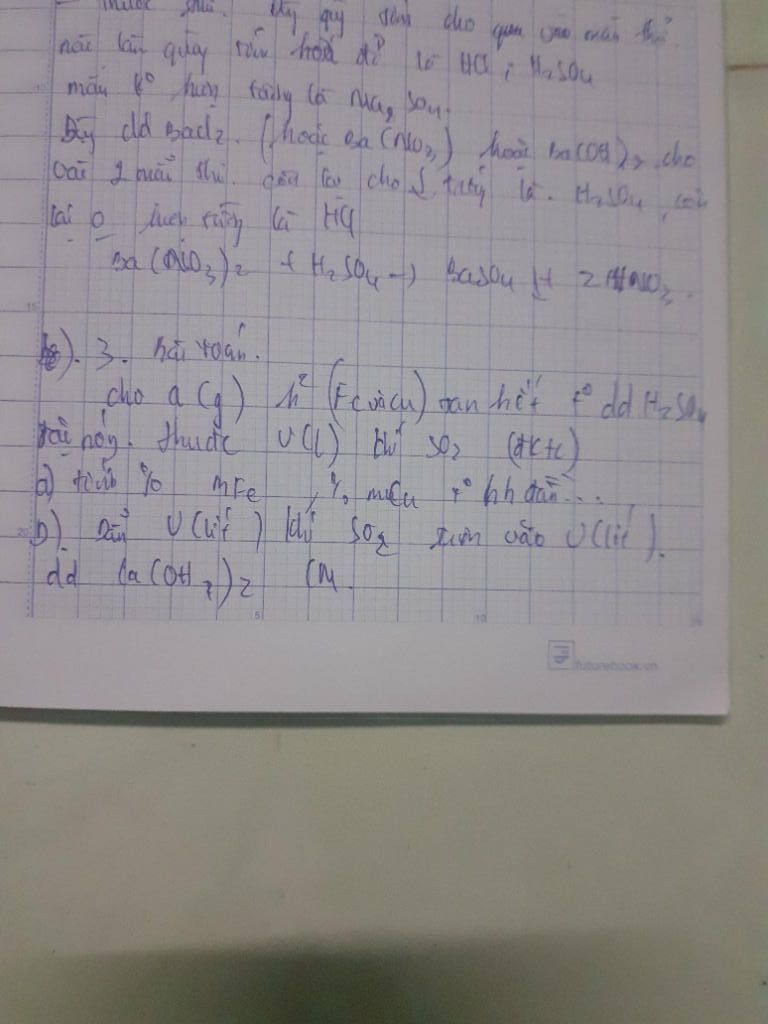 thuốc thử. lấy quỳ tím cho qua vào mẫu thử.
nào làm quỳ tím hoá đỏ là HCl; H2SO4
mẫu ko hiện tượng là Na2SO4.
Lấy dd BaCl2. (hoặc Ba(NO3) hoặc Ba(OH)2, cho
vào 2 mẫu thử. cho ↓ trắng là. H2SO4, còn
lại o hiện tượng là HCl
Ba(NO3)2 + H2SO4 → BaSO4 + 2HNO3.
3. bài toán.
cho a(g) h2 (Fe và Cu) tan hết to dd H2SO4
nóng. thu đc V(l) khí SO2 (đktc)
a) tính % mFe, % mCu to hh đầu...
b). Dẫn V(lít) khí SO2 trên vào V(lít).
dd Ca(OH)2 CM.
5 10
20
15
futurebook.vn